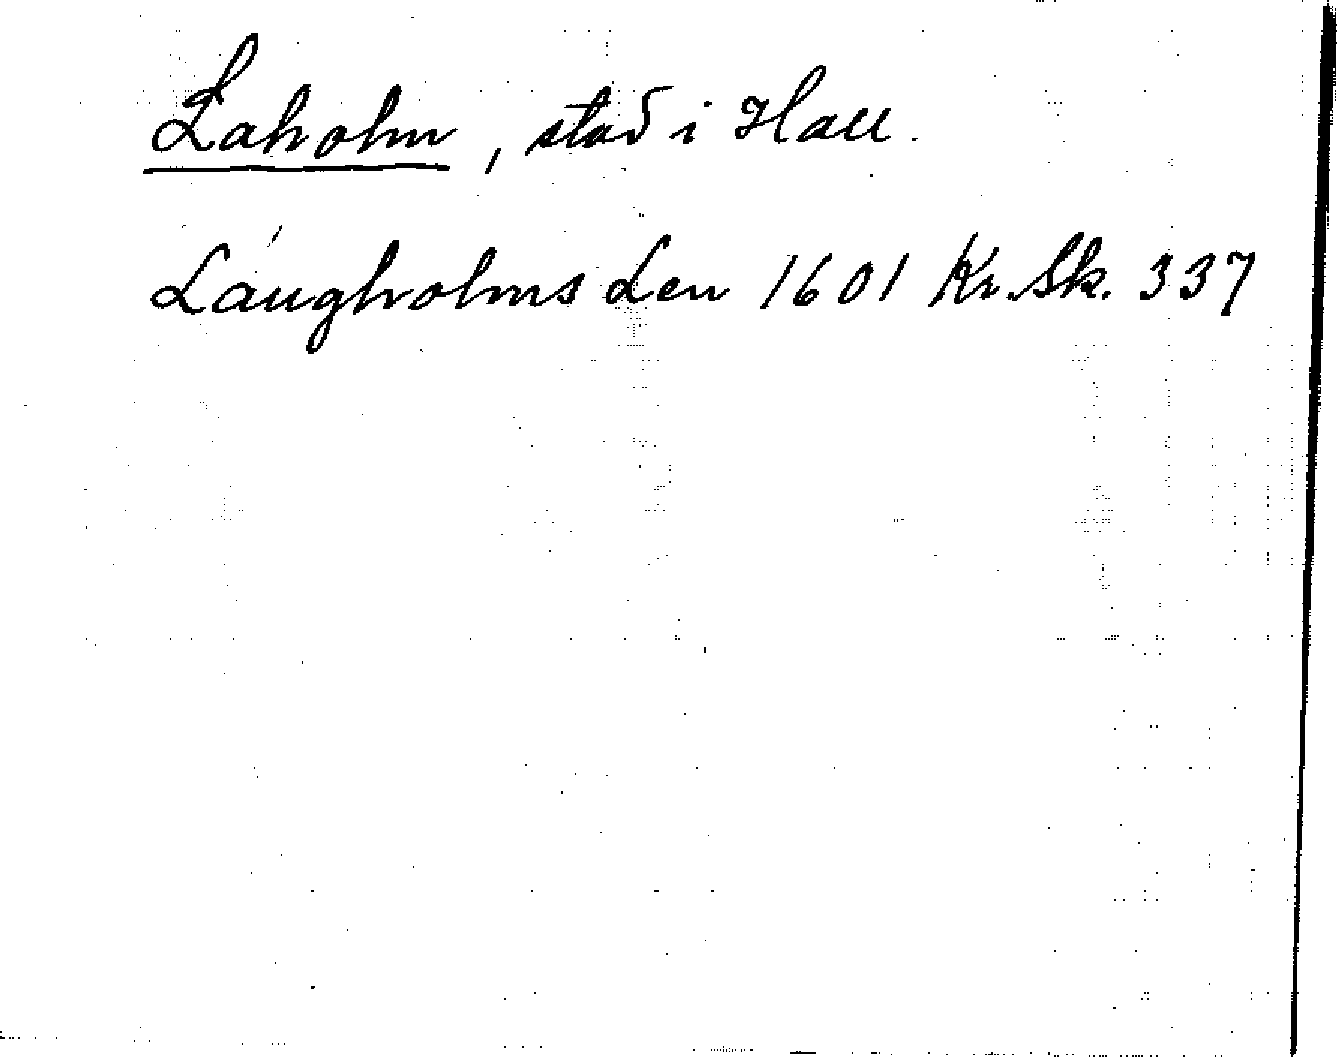 Laholm, stad i Hall.
Láugholms Len 1601 Kr. Sk. 337